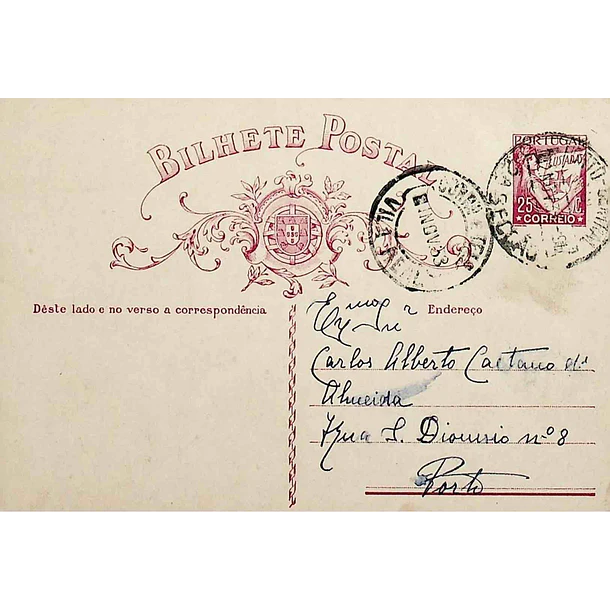 BILHETE POSTAL
PORTUGAL
LUSIADAS
25 C.
CORREIO
Dêste lado e no verso a correspondência
Endereço
Exmo Snr
Carlos Alberto Caetano d'
Almeida
Rua S. Dionisio nº 8
Porto